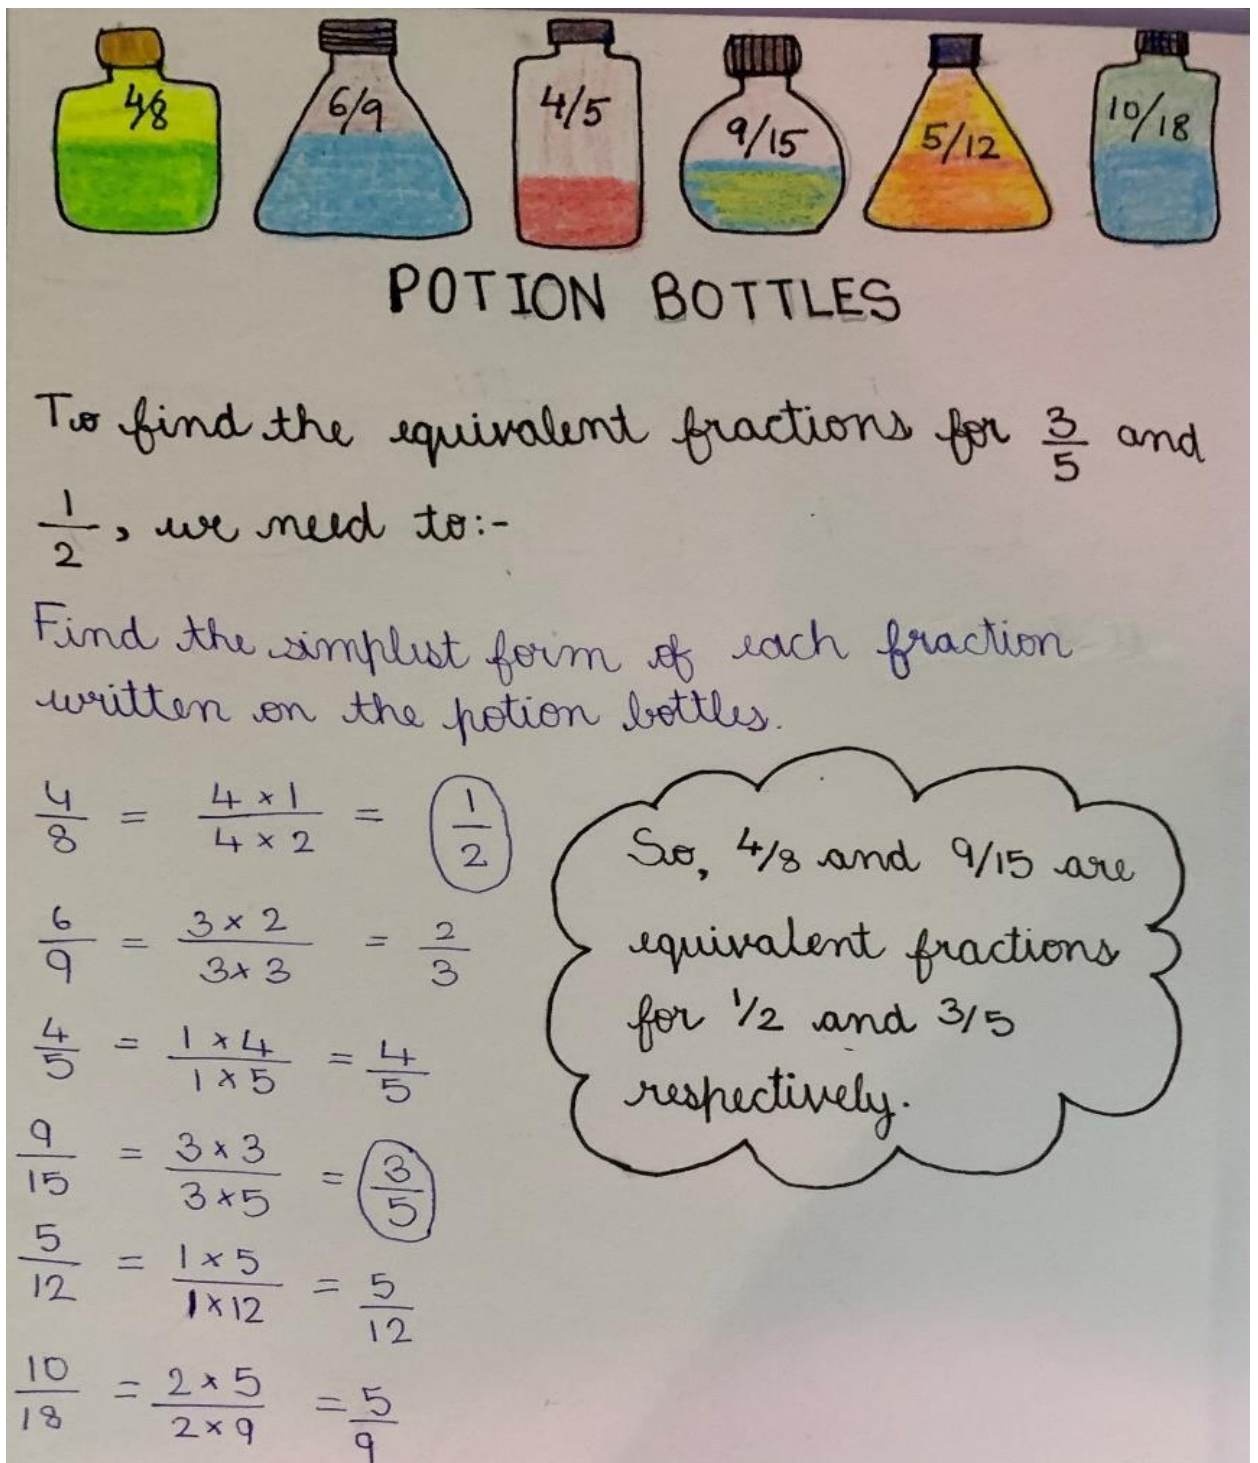 4/8 6/9 4/5 9/15 5/12 10/18
POTION BOTTLES
To find the equivalent fractions for 3/5 and
1/2, we need to:-
Find the simplest form of each fraction
written on the potion bottles.
4/8 = 4 × 1 / 4 × 2 = 1/2
6/9 = 3 × 2 / 3 × 3 = 2/3
4/5 = 1 × 4 / 1 × 5 = 4/5
9/15 = 3 × 3 / 3 × 5 = 3/5
5/12 = 1 × 5 / 1 × 12 = 5/12
10/18 = 2 × 5 / 2 × 9 = 5/9
So, 4/8 and 9/15 are
equivalent fractions
for 1/2 and 3/5
respectively.